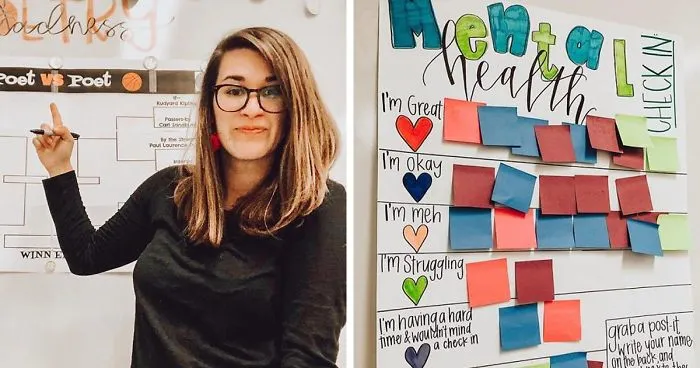 Sadness
Poet VS Poet
Rudyard Kipling
Passers-by
Carl Sandburg
By the Stream
Paul Laurence
WINNER
Mental
health
CHECK IN:
I'm Great
I'm Okay
I'm meh
I'm Struggling
I'm having a hard
time & wouldn't mind
a check in
grab a post-it,
write your name
on the back and